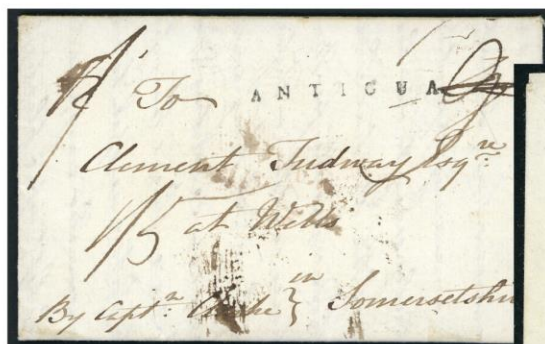 To ANTIGUA
Clement Tudway Esqre
1/5 at Wells
By Captn in Somersetshi